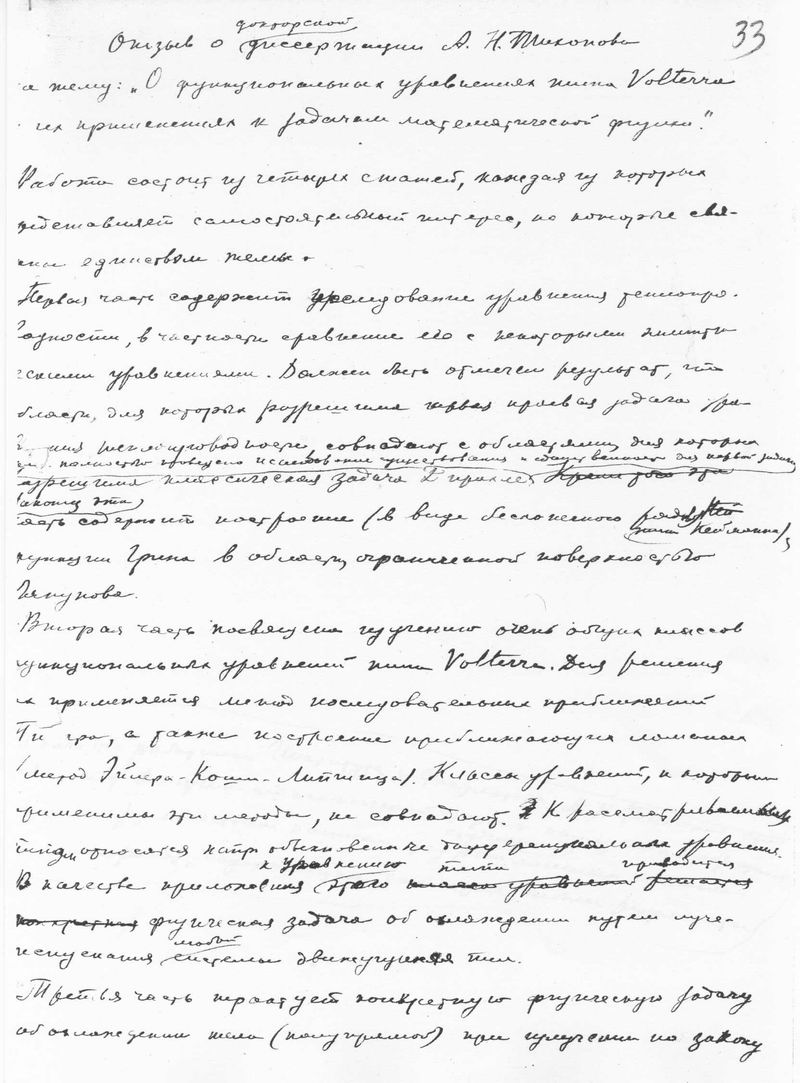 33
докторской
Отзыв о диссертации А. Н. Тихонова
а тему: „О функциональных уравнениях типа Volterra
их применениях к задачам математической физики."
Работа состоит из четырех статей, каждая из которых
редставляет самостоятельный интерес, но которые свя-
аны единством темы.
Первая часть содержит исследование уравнения теплопро-
водности, в частности сравнение его с некоторыми
ескими уравнениями. Должен быть отмечен результат, что
бласти, для которых разрешима первая краевая задача ура
ния теплопроводности, совпадают с областями, для которых
полностью проведено исследование существования и единственности для первой задачи
азрешима классическая задача Dирихле. Кроме того эта
часть содержит построение (в виде бесконечного ряда
типа Неймана),
функции Грина в области, ограниченной поверхностью
Ляпунова.
Вторая часть посвящена изучению очень общих классов
ункциональных уравнений типа Volterra. Для решения
х применяется метод последовательных приближений
а также построение приближающих ломаных
(метод Эйлера-Коши-Липшица). Классы уравнений, к которым
рименимы эти методы, не совпадают. К рассматриваемым
относятся напр. обыкновенные дифференциальные уравнения.
к уравнению типа приводится
В качестве приложения этого класса уравнений решается
конкретная физическая задача об охлаждении путем луче-
любой
испускания системы движущихся тел.
Третья часть трактует конкретную физическую задачу
об охлаждении тела (полупрямой) при излучении по закону